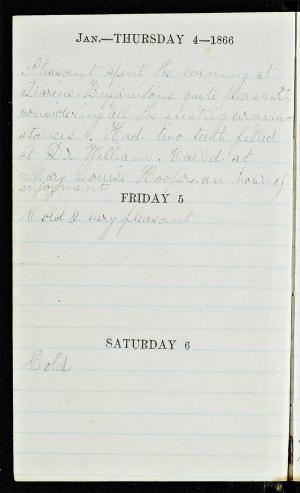 Jan.—THURSDAY 4—1866
Pleasant spent the evening at
Darius quite pleasantly
considering all the existing circum-
stances. Had two teeth filled
at Dr. William. Called at
Mary Louise Hoopes. an hour of
enjoyment
FRIDAY 5
Cold & very pleasant
SATURDAY 6
Cold